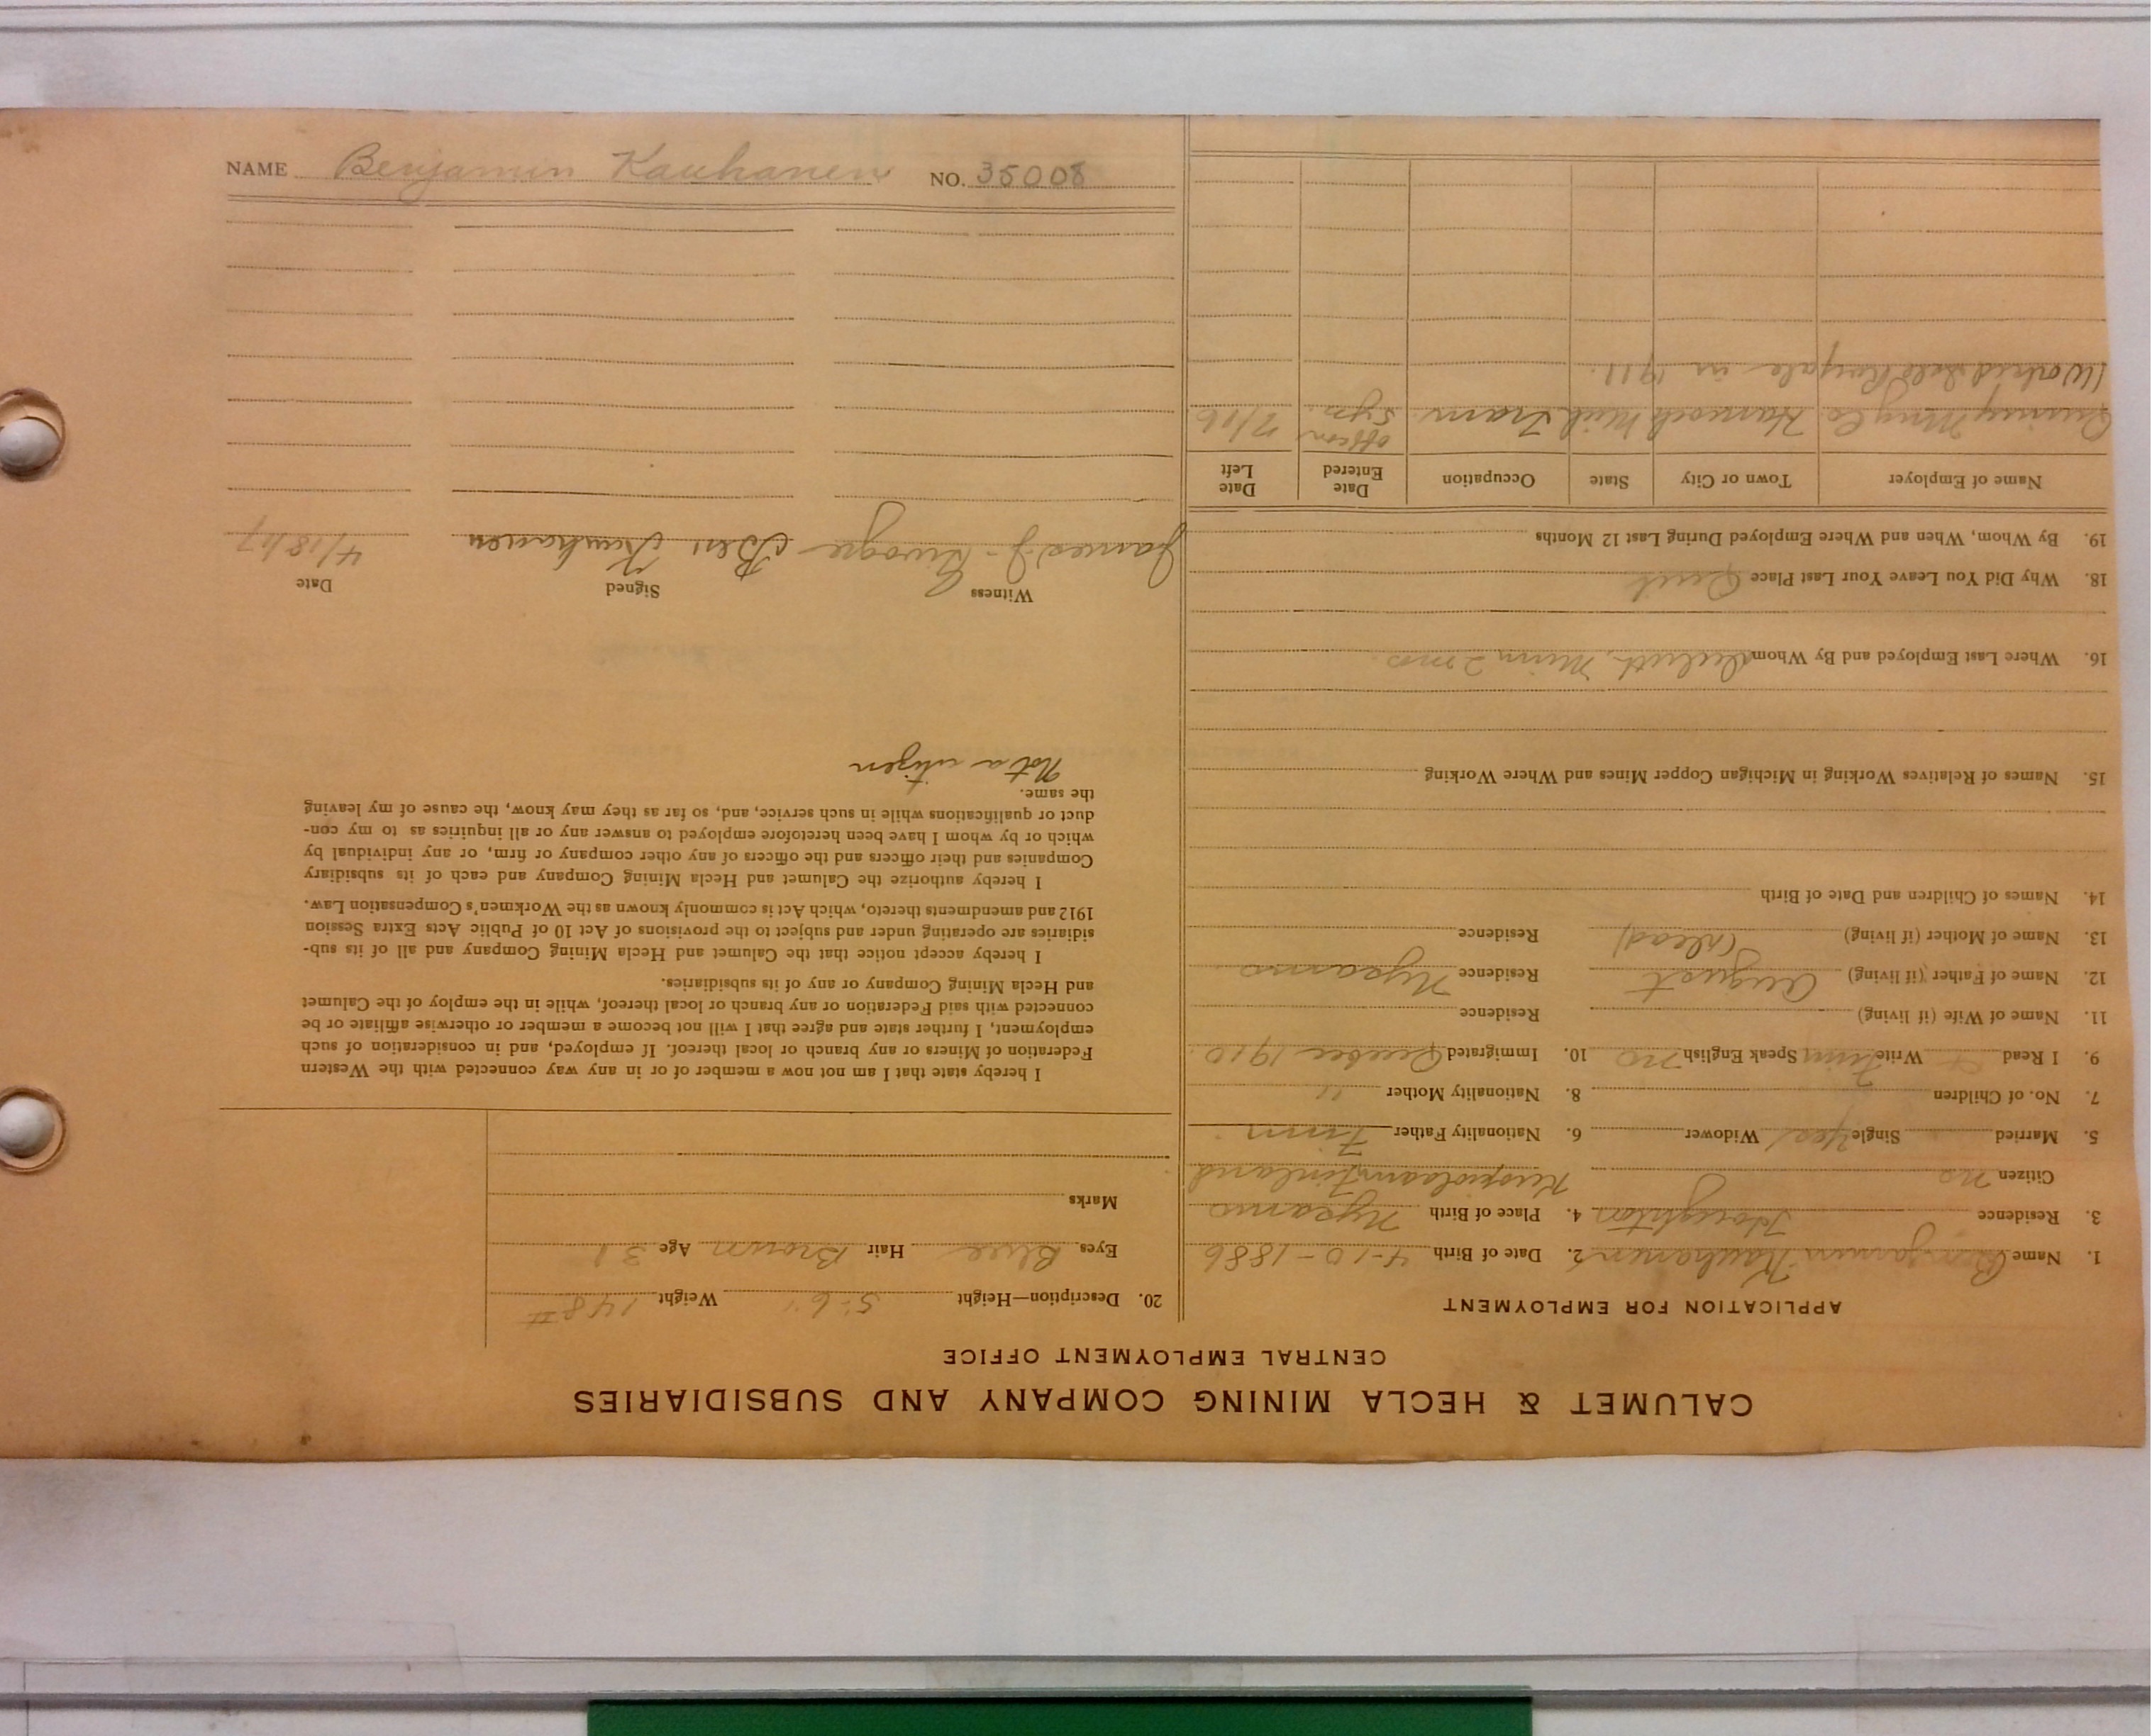 CALUMET & HECLA MINING COMPANY AND SUBSIDIARIES
CENTRAL EMPLOYMENT OFFICE
APPLICATION FOR EMPLOYMENT
1. Name Benjamin Kauhanen 2. Date of Birth 4-10-1886
3. Residence Houghton 4. Place of Birth
Citizen no Finland
5. Married Single Yes Widower 6. Nationality Father Finn
7. No. of Children 8. Nationality Mother "
9. I Read Write Finn Speak English no 10. Immigrated October 1910
11. Name of Wife (if living) Residence
12. Name of Father (if living) August Residence
13. Name of Mother (if living) (dead) Residence
14. Names of Children and Date of Birth
15. Names of Relatives Working in Michigan Copper Mines and Where Working
16. Where Last Employed and By Whom Duluth, Minn 2 mos
18. Why Did You Leave Your Last Place Quit
19. By Whom, When and Where Employed During Last 12 Months
Name of Employer Town or City State Occupation Date Entered Date Left
Quincy Mng Co. Hancock Mich Tram off & on 5 yrs.
Worked Isle Royale in 1911.
20. Description—Height 5'6" Weight 148 #
Eyes Blue Hair Brown Age 31
Marks
I hereby state that I am not now a member of or in any way connected with the Western
Federation of Miners or any branch or local thereof. If employed, and in consideration of such
employment, I further state and agree that I will not become a member or otherwise affiliate or be
connected with said Federation or any branch or local thereof, while in the employ of the Calumet
and Hecla Mining Company or any of its subsidiaries.
I hereby accept notice that the Calumet and Hecla Mining Company and all of its sub-
sidiaries are operating under and subject to the provisions of Act 10 of Public Acts Extra Session
1912 and amendments thereto, which Act is commonly known as the Workmen's Compensation Law.
I hereby authorize the Calumet and Hecla Mining Company and each of its subsidiary
Companies and their officers and the officers of any other company or firm, or any individual by
which or by whom I have been heretofore employed to answer any or all inquiries as to my con-
duct or qualifications while in such service, and, so far as they may know, the cause of my leaving
the same.
Not a citizen
Witness Signed Date
James J. Ben Kauhanen 4/18/17
NAME Benjamin Kauhanen NO. 35008